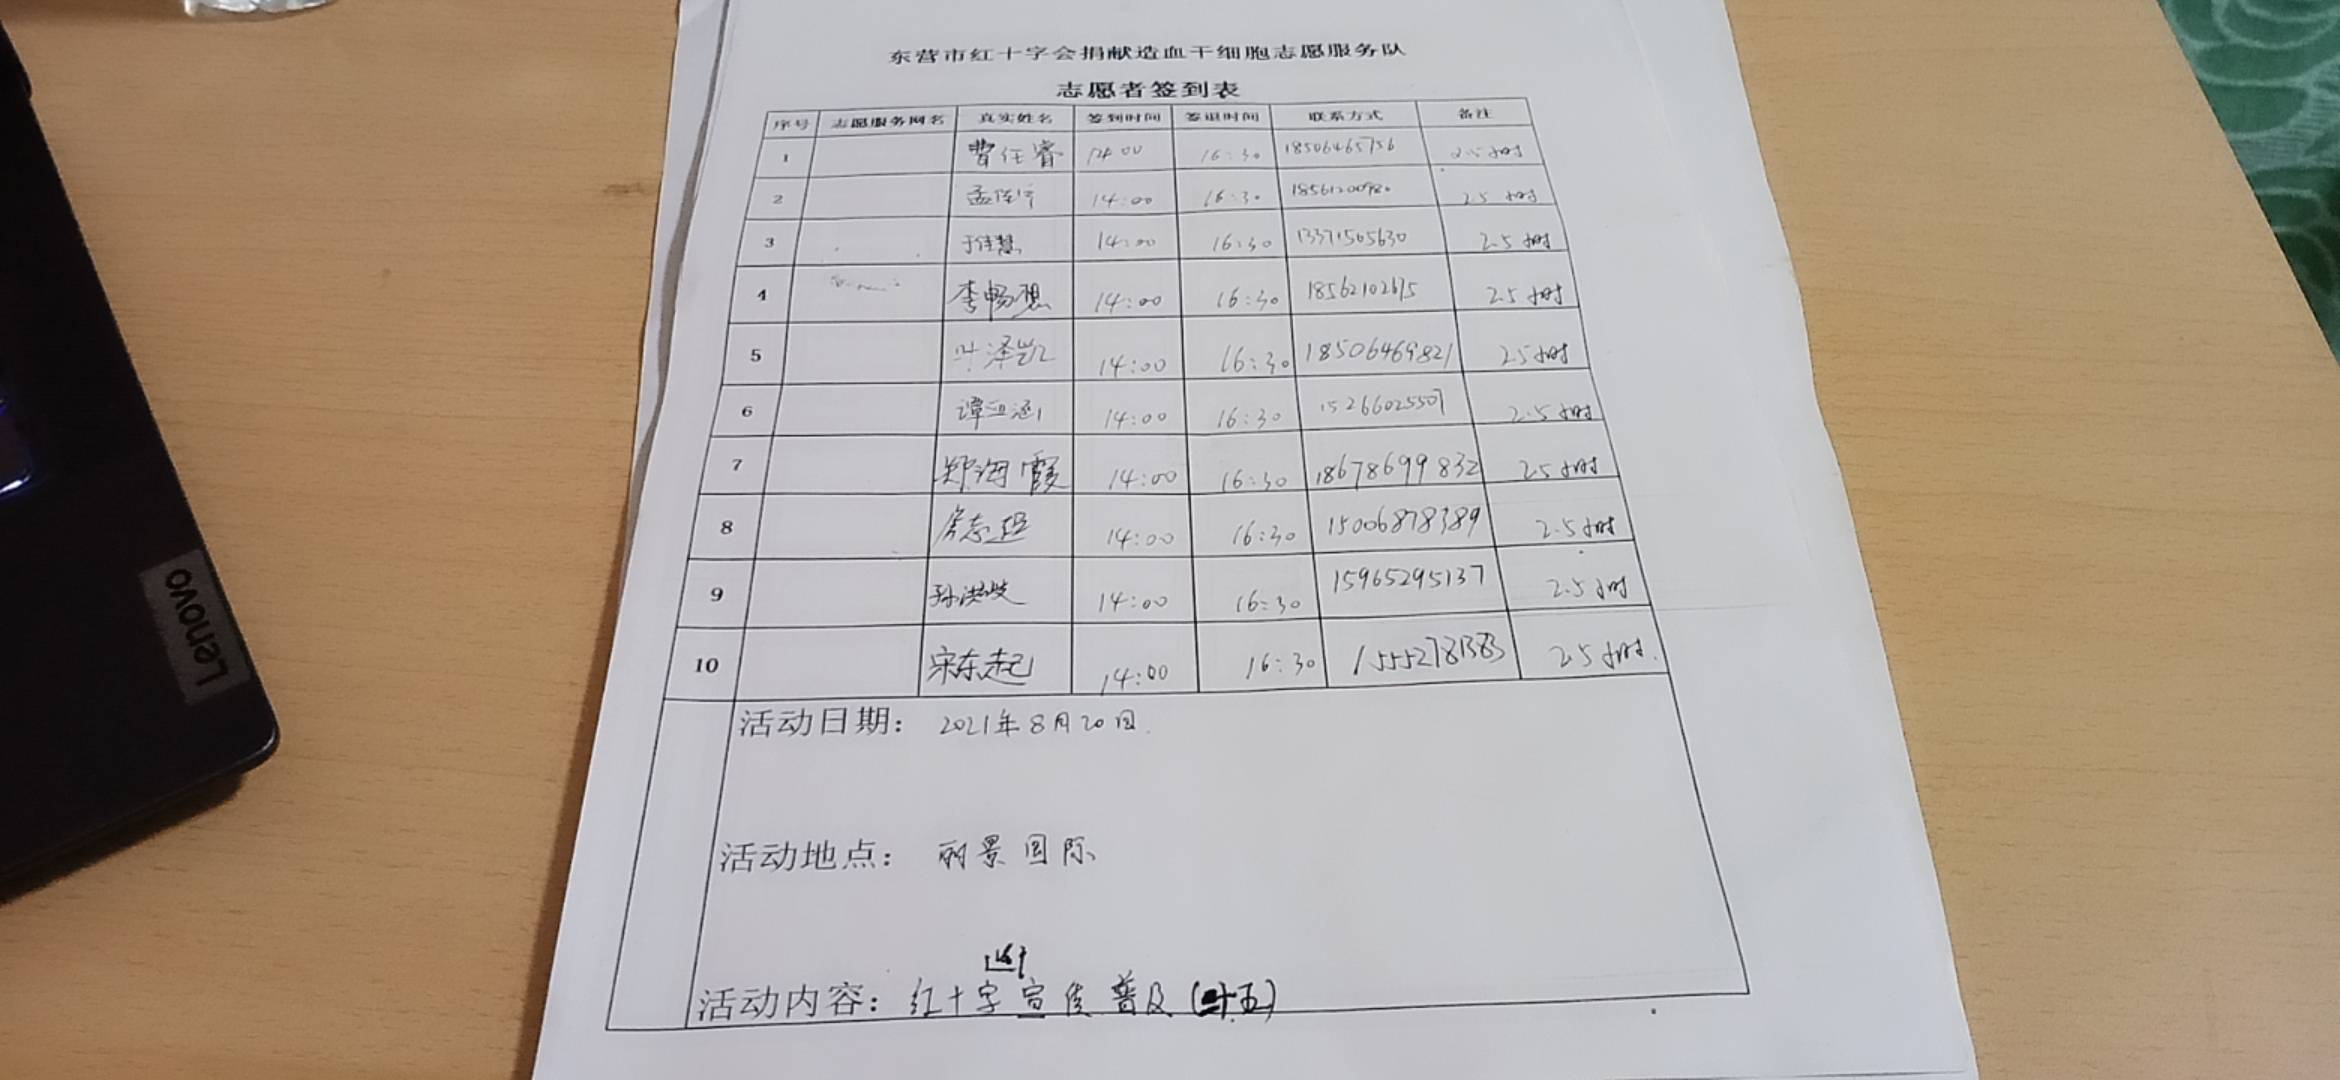 东营市红十字会捐献造血干细胞志愿服务队
志愿者签到表
序号 志愿服务网名 真实姓名 签到时间 签退时间 联系方式 备注
1 曹任睿 14:00 16:30 18506465756 2.5小时
2 14:00 16:30 2.5小时
3 于佳慧 14:00 16:30 13371505630 2.5小时
4 李畅想 14:00 16:30 2.5小时
5 叶泽凯 14:00 16:30 18506469821 2.5小时
6 14:00 16:30 15266025507 2.5小时
7 郑海霞 14:00 16:30 18678699832 2.5小时
8 14:00 16:30 15006878389 2.5小时
9 14:00 16:30 15965295137 2.5小时
10 宋东起 14:00 16:30 15552781383 2.5小时.
活动日期: 2021年8月20日.
活动地点: 丽景国际
活动内容: 红十字宣传普及(十五)
Lenovo